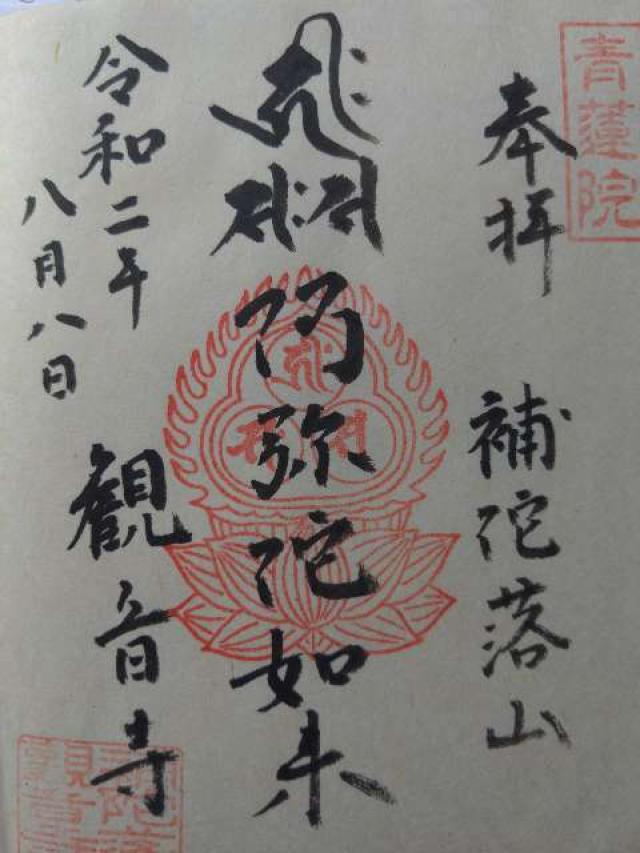 青蓮院
奉拝
補陀落山
阿弥陀如来
観音寺
令和二年
八月八日